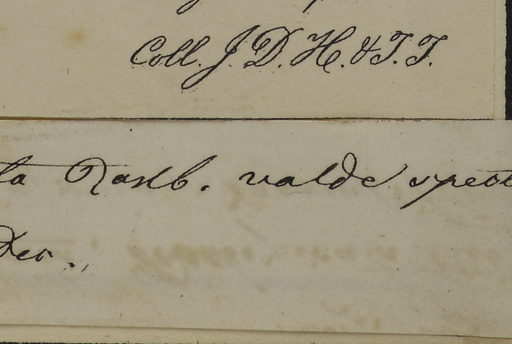 Coll. J. D. H. & T. T.
ta Roxb. valde spect